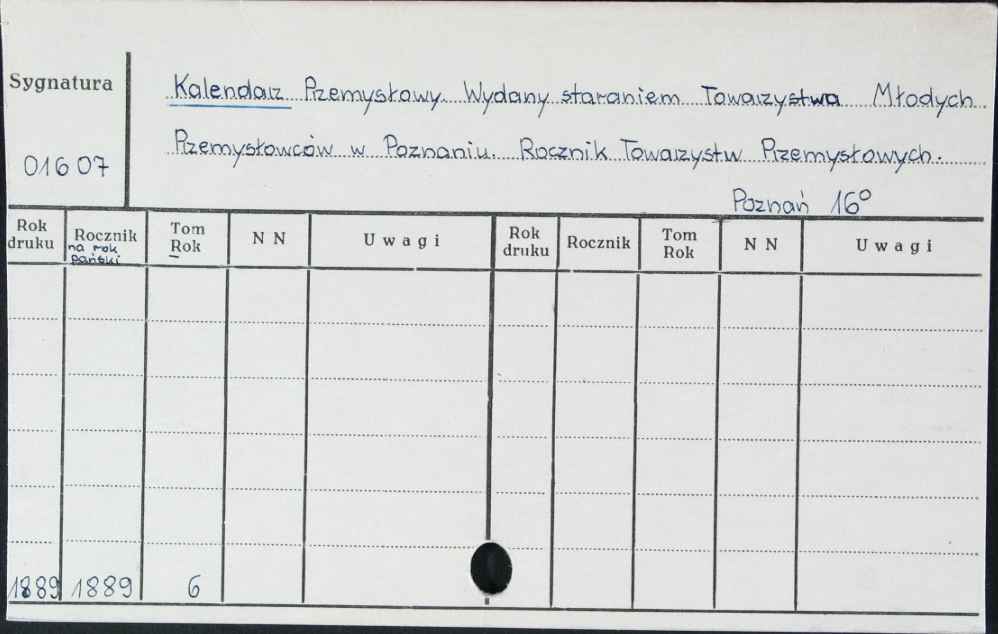 Sygnatura
Kalendarz Przemysłowy. Wydany staraniem Towarzystwa Młodych
01607
Przemysłowców w Poznaniu. Rocznik Towarzystw Przemysłowych.
Poznań 16°
Rok druku Rocznik na rok pański Tom Rok N N Uwagi Rok druku Rocznik Tom Rok N N Uwagi
1889 1889 6